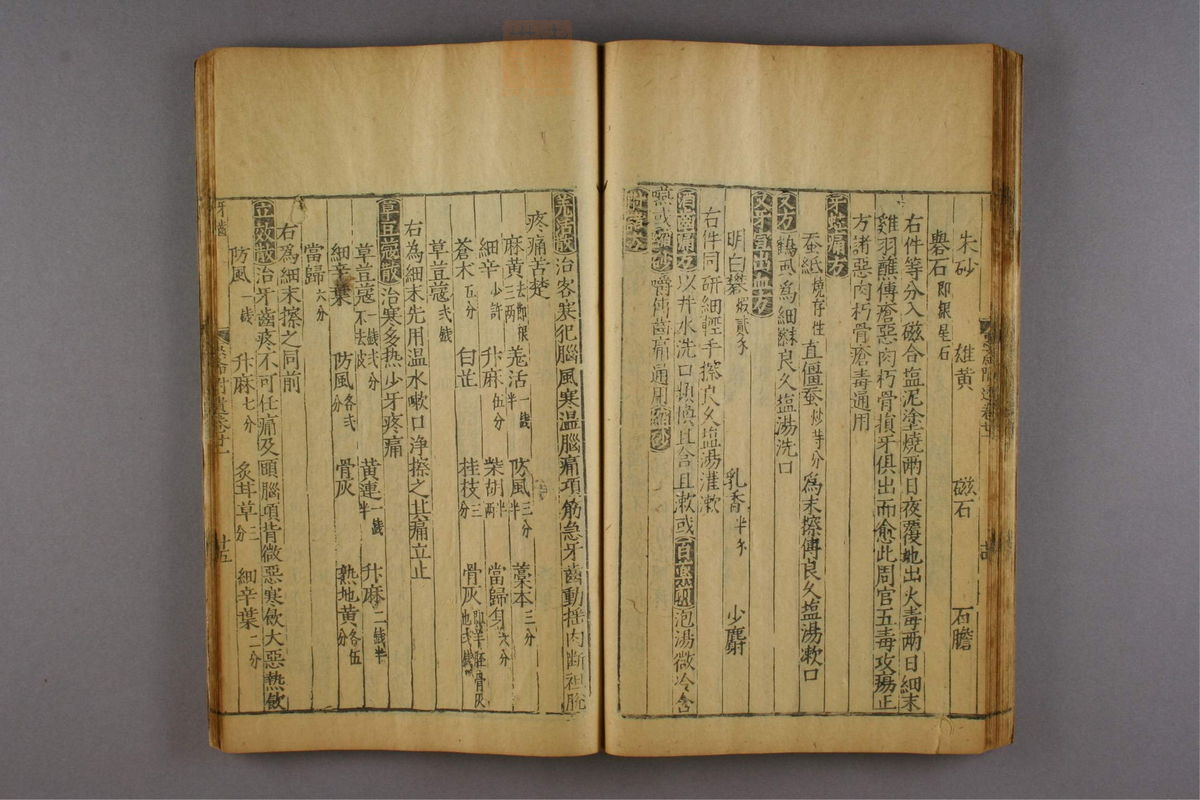 朱砂　雄黃　磁石　石膽
礜石即銀星石
右件等分入磁合塩泥塗燒兩日夜覆地出火毒兩日細末
雞羽蘸傅瘡惡肉朽骨損牙俱出而愈此周官五毒攻瘍正
方諸惡肉朽骨瘡毒通用
牙痛方
蚕紙燒存性　直僵蚕炒等分　為末擦傅良久塩湯漱口
又方鶴虱為細末擦良久塩湯洗口
又牙宣出血方
明白礬煅貳錢　乳香半錢　少麝
右件同研細輕手擦良久塩湯灌漱
酒齒痛方以井水洗口頻換且含且漱或百藥煎泡湯微冷含
嚥或縮砂嚼傅齒痛通用縮砂
羌活散治客寒犯腦風寒温腦痛項筋急牙齒動搖肉斷袒脫
疼痛苦楚
麻黃去節三兩　羌活一錢半　防風三分半　藁本三分
細辛少許　升麻伍分　柴胡半兩　當歸身六分
蒼术五分　白芷　桂枝三分　骨灰即羊脛骨灰也弍錢
草荳蔻弍錢
右為細末先用温水嗽口浄擦之其痛立止
草豆蔻散治寒多热少牙疼痛
草荳蔻一錢弍分不去皮　黃連一錢半　升麻二錢半
細辛葉　防風各弍　骨灰　熟地黃各伍分
當歸六分
右為細末擦之同前
立效散治牙齒疼不可任痛及頭腦項背微惡寒飲大惡熱飲
防風一錢　升麻七分　炙甘草三分　細辛葉二分
廿五